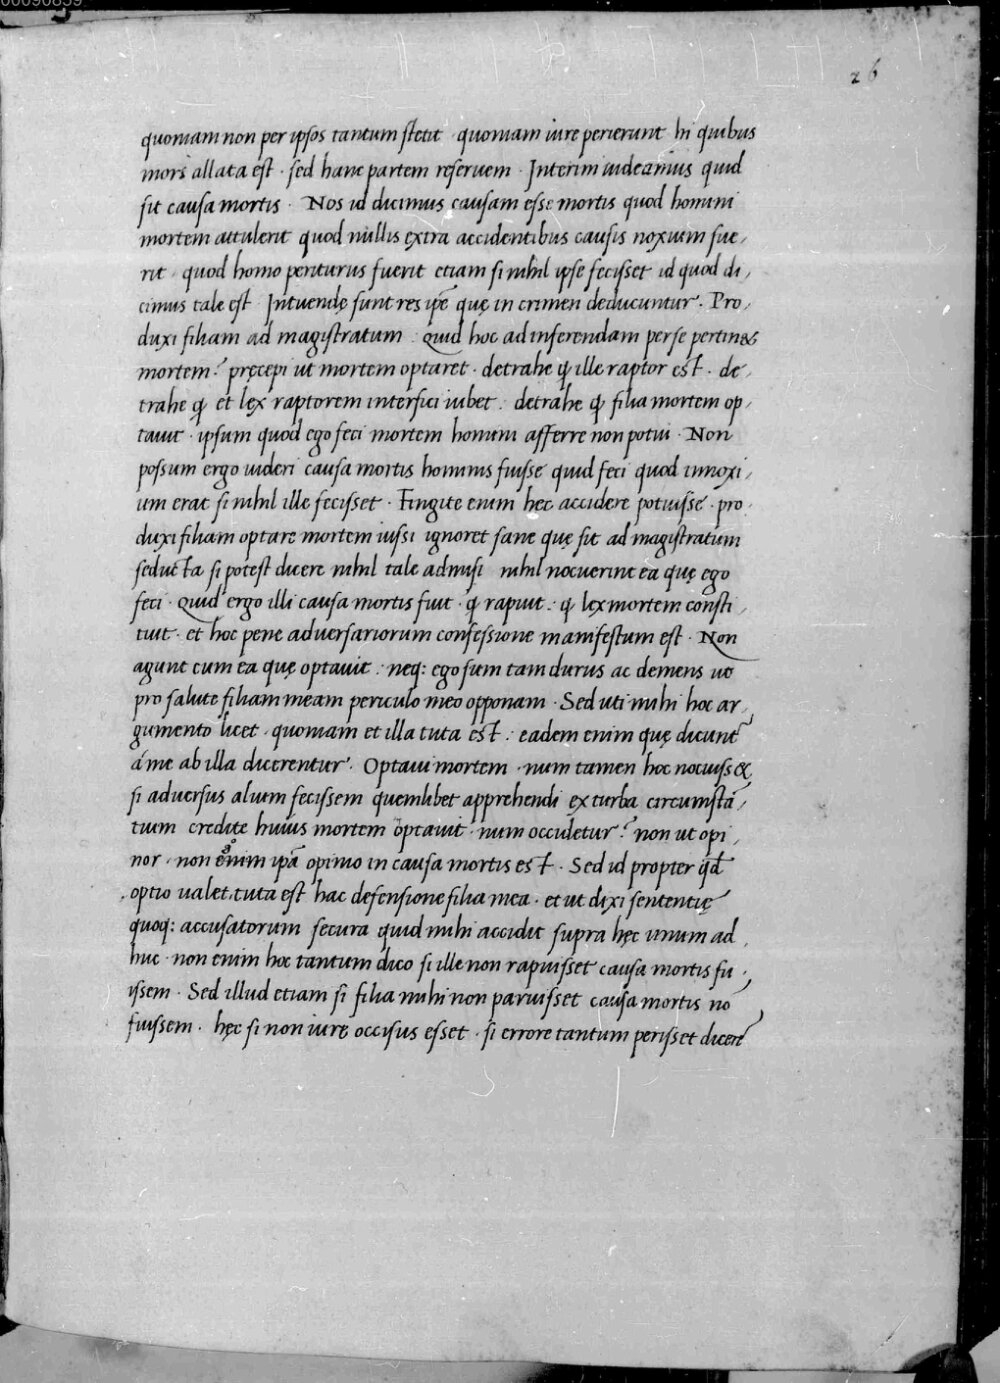 00090859
26
quoniam non per ipsos tantum stetit · quoniam iure perierunt hi quibus
mors allata est · sed hanc partem reseruem · Interim uideamus quid
sit causa mortis · Nos id dicimus causam esse mortis quod homini
mortem attulerit quod nullis extra accidentibus causis noxium fue,
rit · quod homo periturus fuerit etiam si nihil ipse fecisset id quod di,
cimus tale est · Intuendę sunt res ipę quę in crimen deducuntur · Pro,
duxi filiam ad magistratum · Quid hoc ad inferendam per se pertin&
mortem? pręcepi ut mortem optaret · detrahe ꝙ ille raptor est · de,
trahe ꝙ et lex raptorem interfici iubet : detrahe ꝙ filia mortem op,
tauit · ipsum quod ego feci mortem homini afferre non potui · Non
possum ergo uideri causa mortis hominis fuisse quid feci quod innoxi,
um erat si nihil ille fecisset · Fingite enim hec accidere potuisse · pro,
duxi filiam optare mortem iussi ignoret sane quę sit ad magistratum
seducta si potest dicere nihil tale admisi nihil nocuerint ea quę ego
feci · Quid ergo illi causa mortis fuit · ꝙ rapuit : ꝙ lex mortem consti,
tuit · et hoc pene aduersariorum confessione manifestum est · Non
agunt cum ea quę optauit : neq: ego sum tam durus ac demens ut
pro salute filiam meam periculo meo opponam · Sed uti mihi hoc ar,
gumento licet · quoniam et illa tuta est : eadem enim quę dicunt
á me ab illa dicerentur · Optaui mortem · num tamen hoc nocuiss&
si aduersus alium fecissem quemlibet apprehendi ex turba circumstā,
tium credite huius mortem optauit · num occidetur? non ut opi,
nor · non enim ipā opinio in causa mortis est · Sed id propter qd̄
optio ualet · tuta est hac defensione filia mea · et ut dixi sententię
quoq: accusatorum secura quid mihi accidit supra hęc unum ad,
huc · non enim hoc tantum dico si ille non rapuisset causa mortis fu,
issem · Sed illud etiam si filia mihi non paruisset causa mortis nō
fuissem · hęc si non iure occisus esset · si errore tantum perisset dicerē